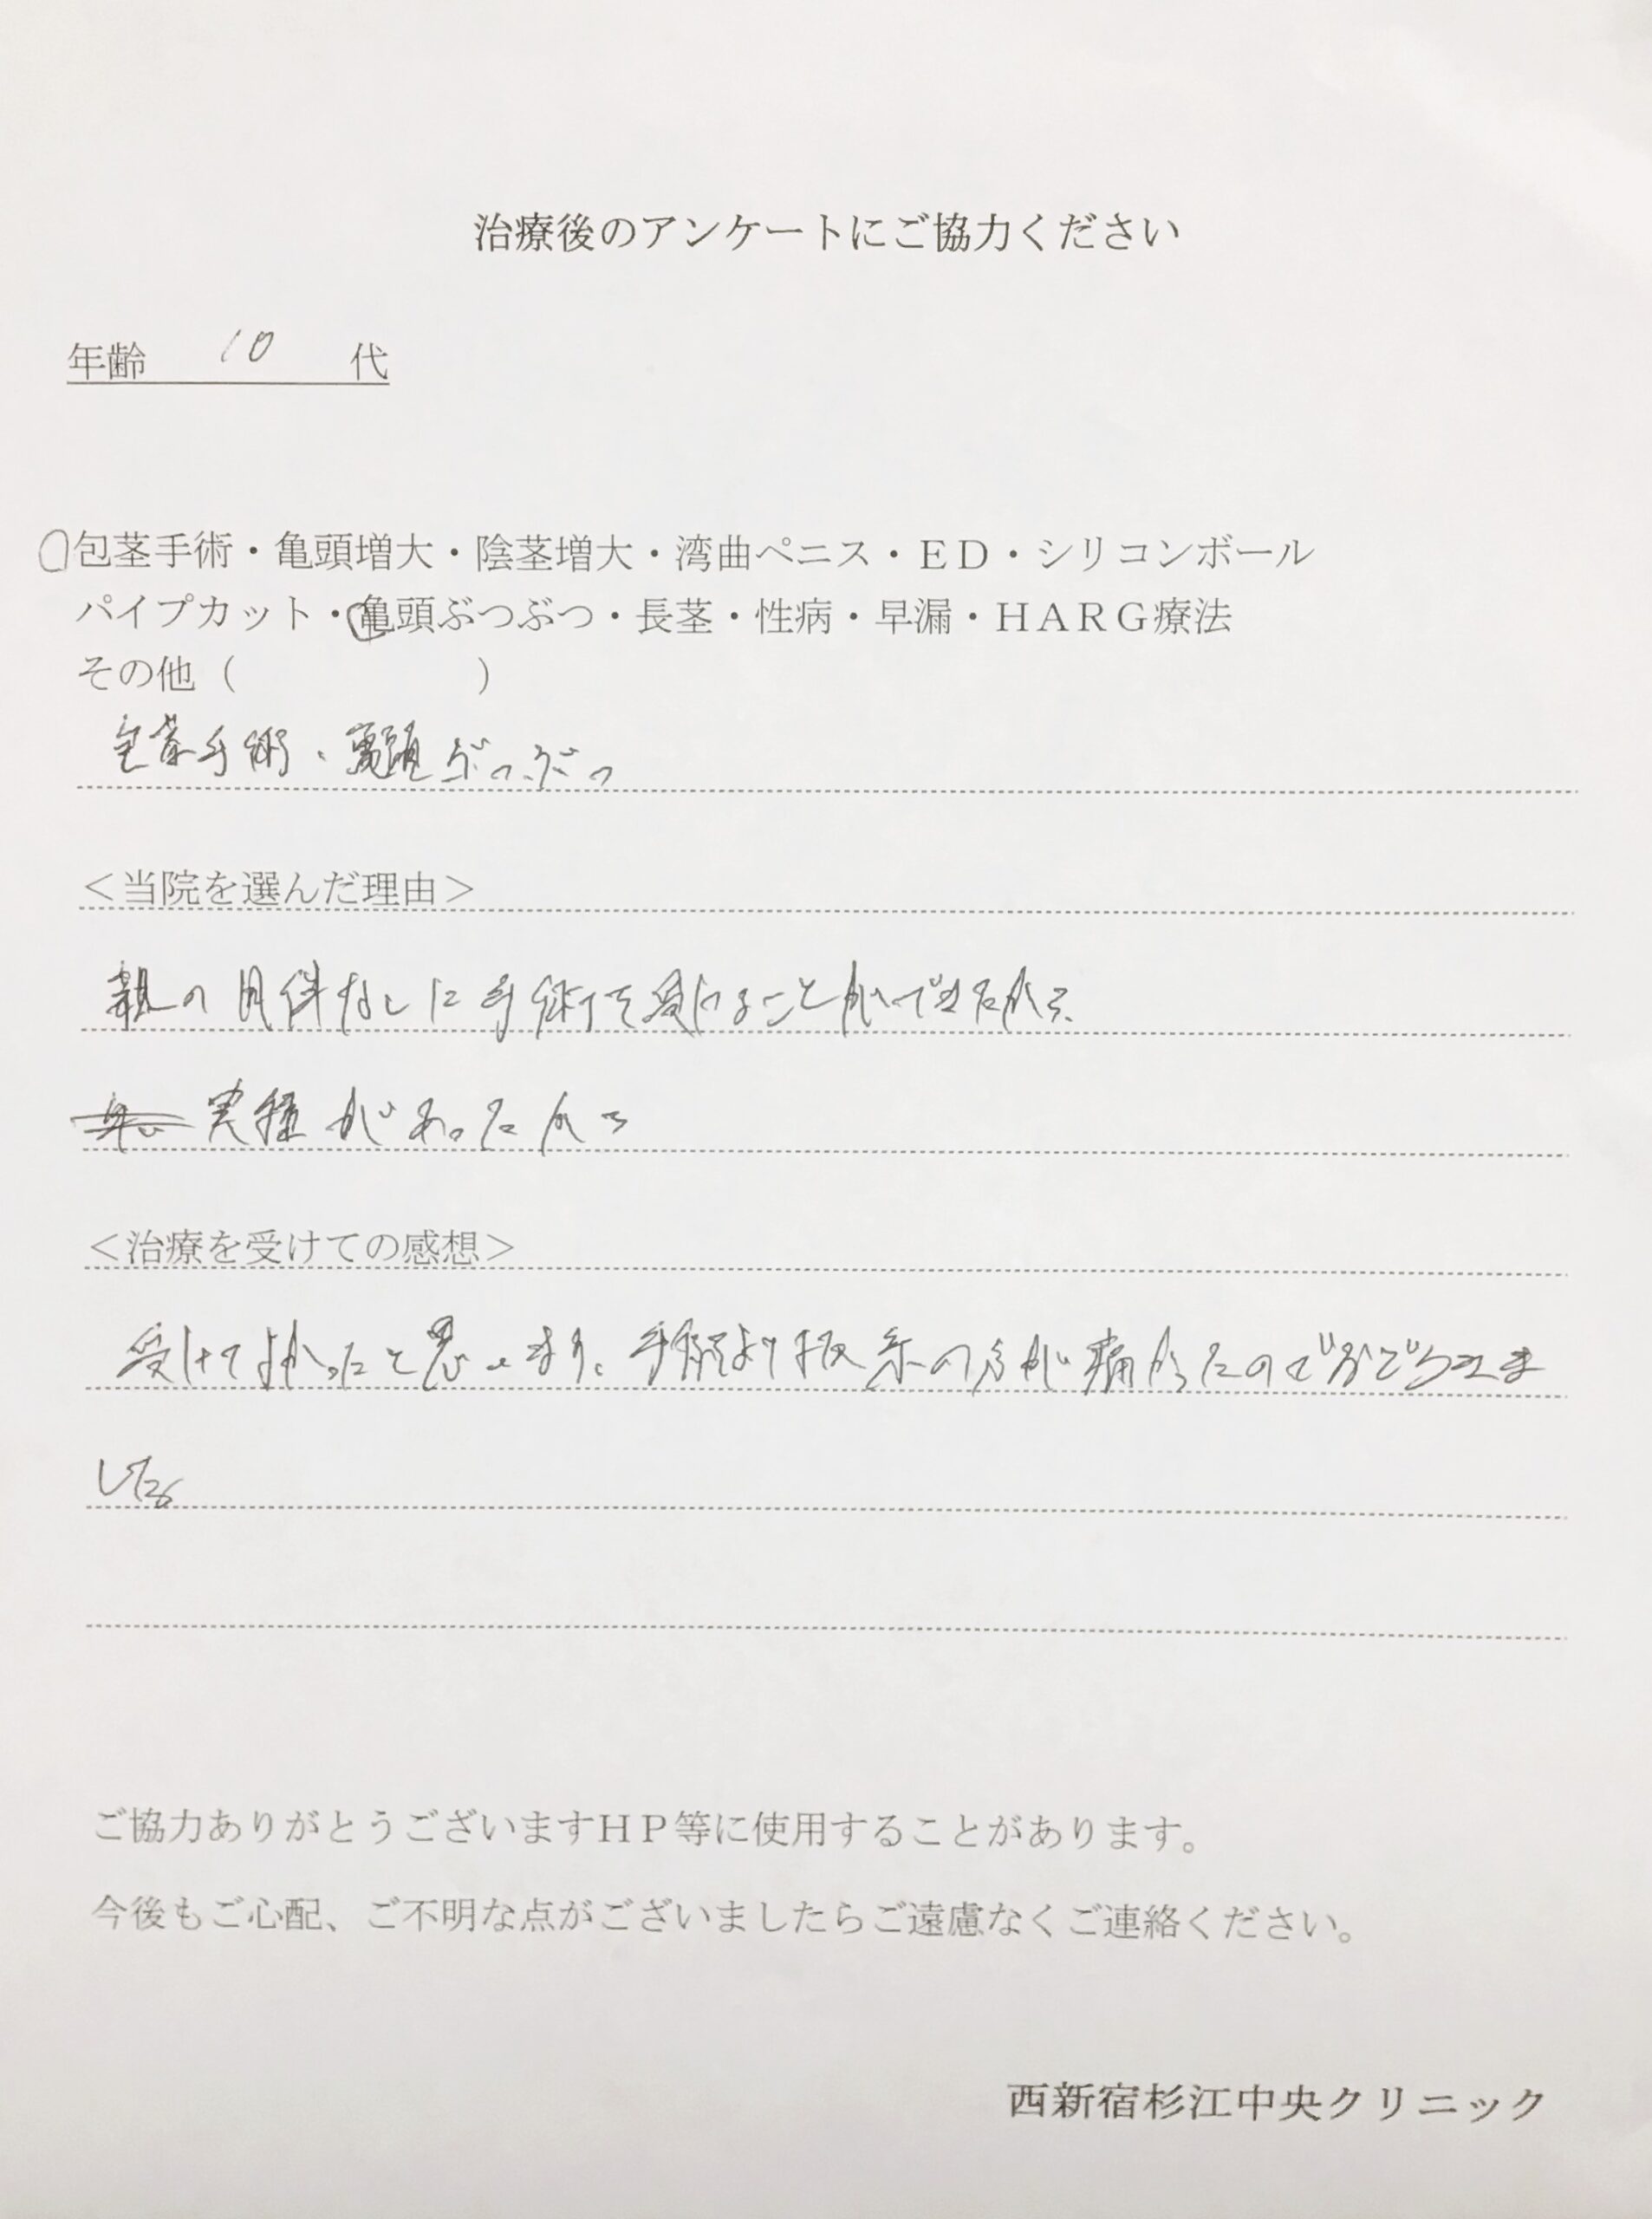 治療後のアンケートにご協力ください
年齢 10 代
包茎手術・亀頭増大・陰茎増大・湾曲ペニス・ED・シリコンボール
パイプカット・亀頭ぶつぶつ・長茎・性病・早漏・HARG療法
その他（ ）
包茎手術、亀頭ぶつぶつ
＜当院を選んだ理由＞
親の同伴なしに手術を受けることができたから
実績があったから
＜治療を受けての感想＞
受けてよかったと思います。手術より抜糸の方が痛かったのでおどろきま
した。
ご協力ありがとうございますHP等に使用することがあります。
今後もご心配、ご不明な点がございましたらご遠慮なくご連絡ください。
西新宿杉江中央クリニック